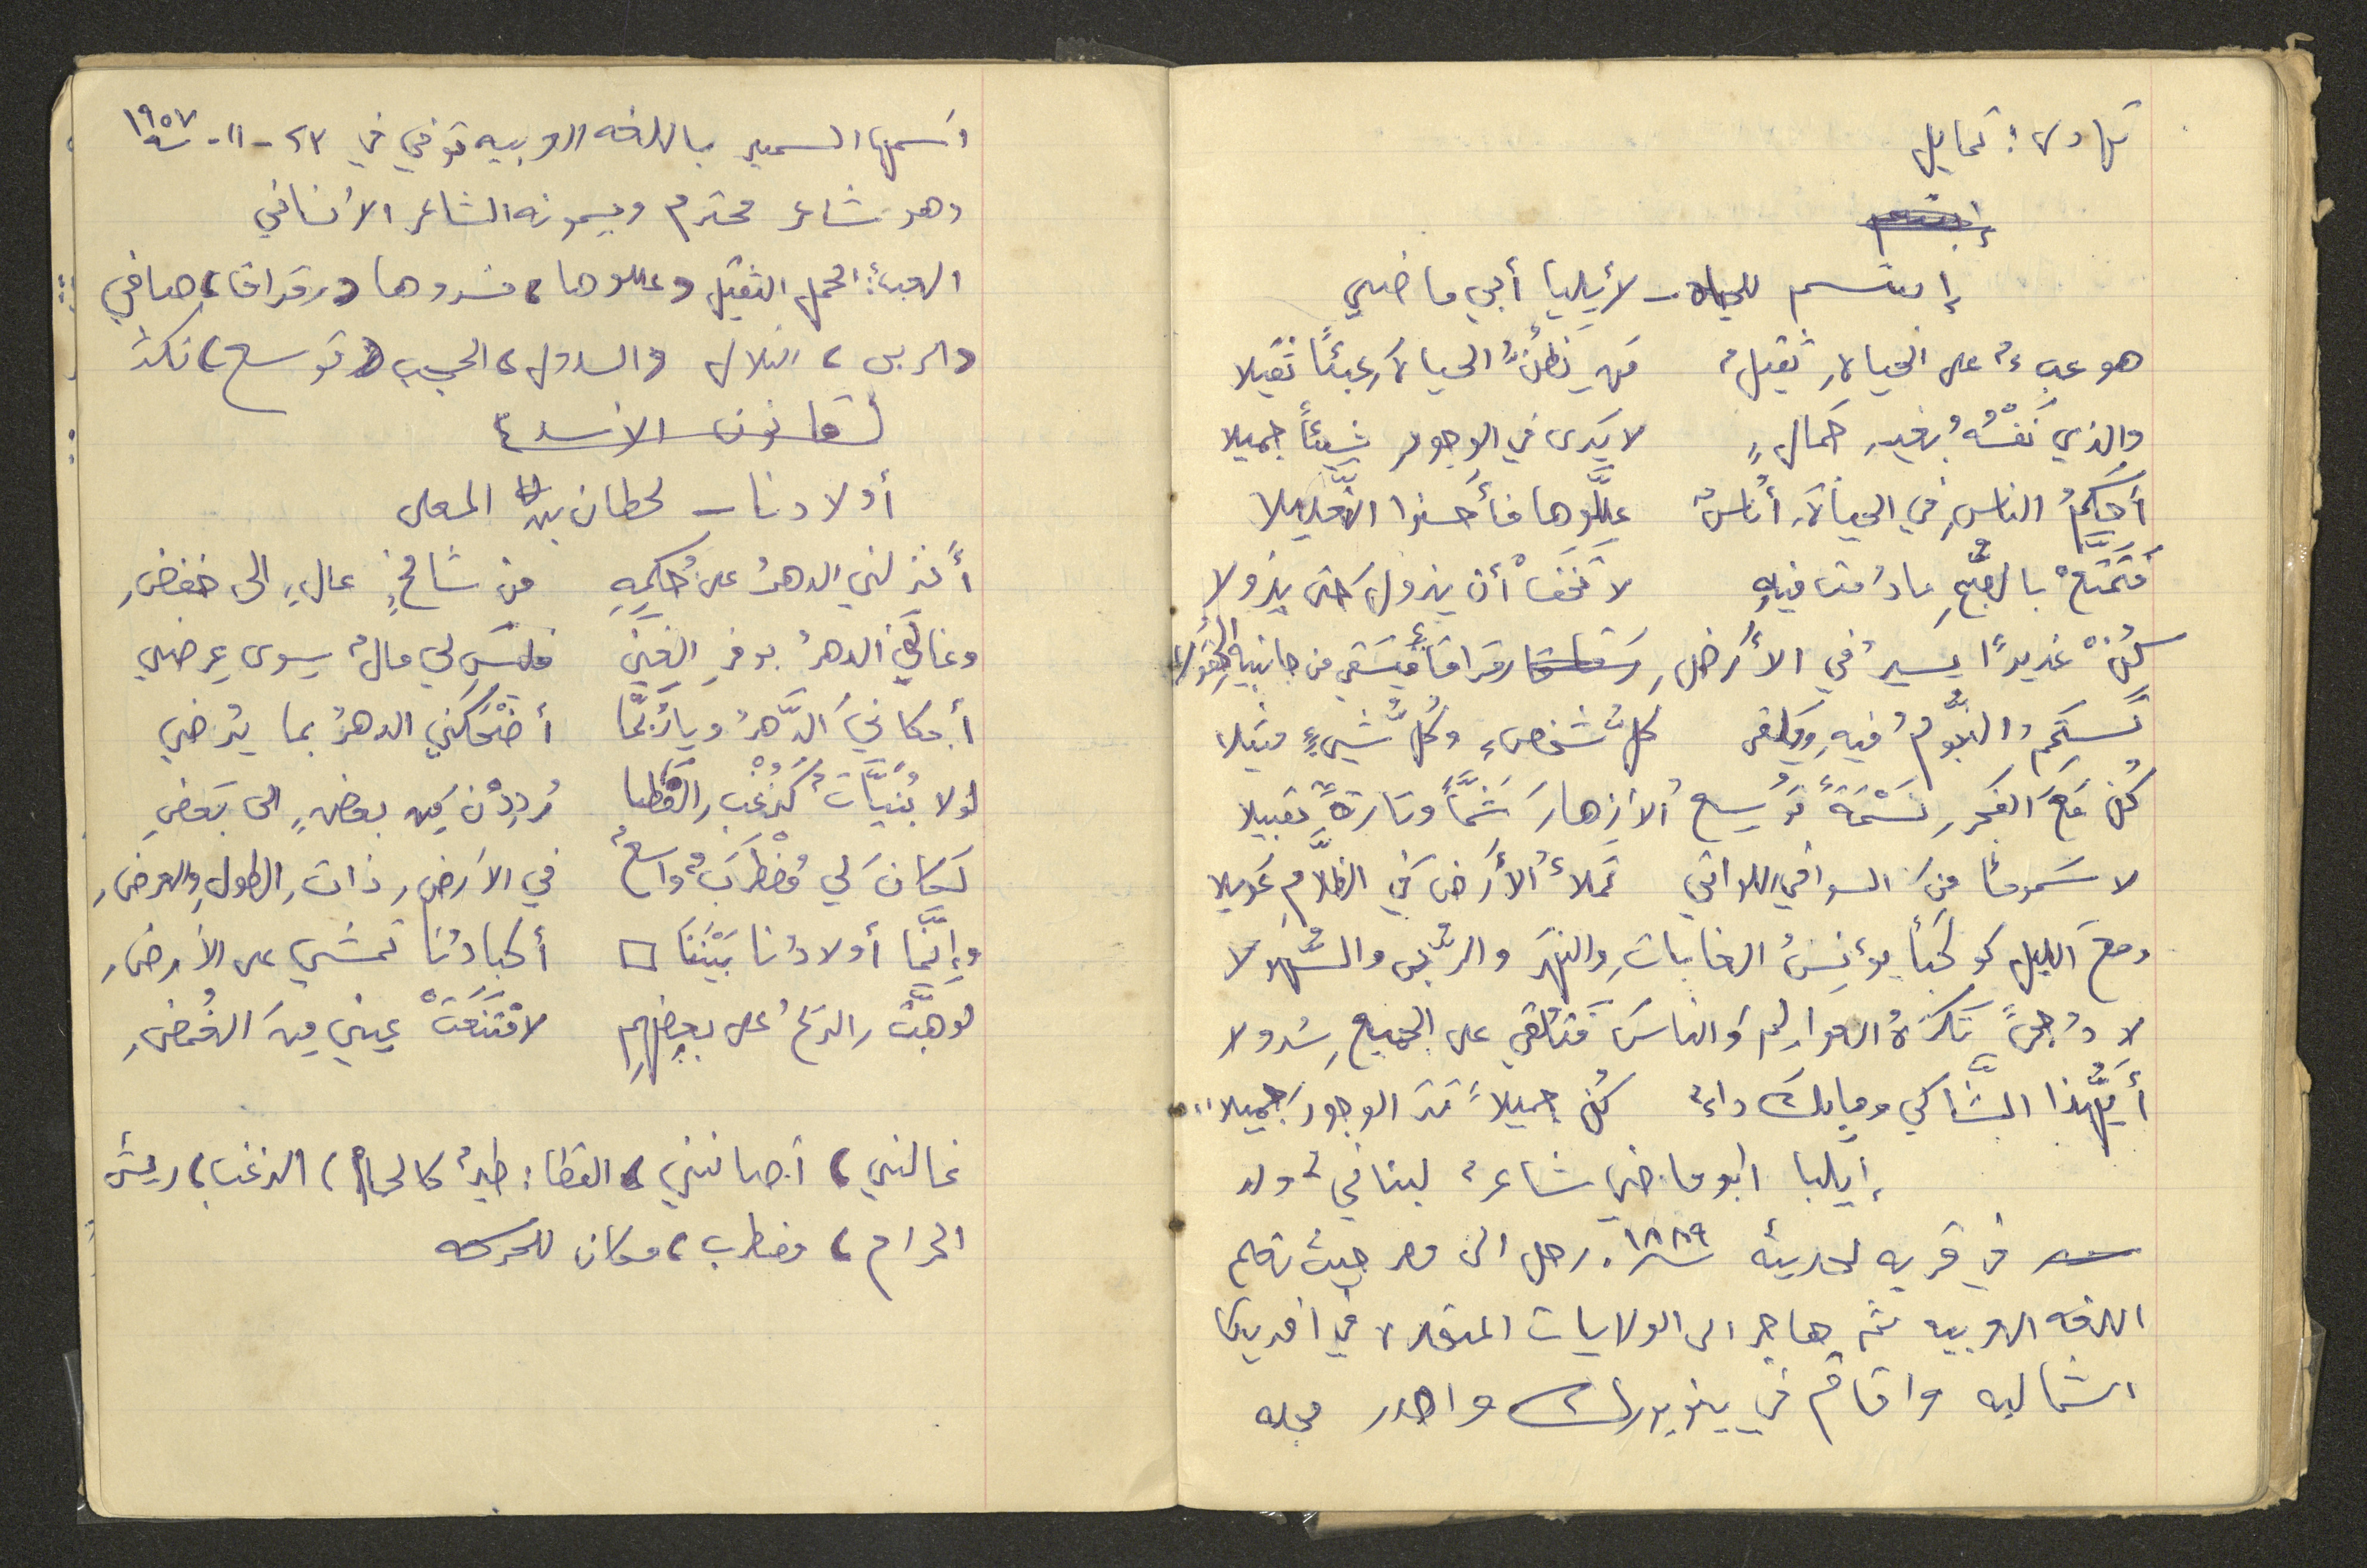 تهادى : تمايل
إبتسم
إبتسم للحياة - لأيليا أبي ماضي
هو عبءٌ على الحياةِ ثقيلٌ من يَظُنُّ الحياةَ عبئاً ثقيلا
والذي نَفْسُهُ بغيرِ جمالٍ لا يَرى في الوجودِ شيئاً جميلا
أحكمُ الناسِ في الحياةِ أُناسٌ عللَّوها فأحسنوا التَّعليلا
فتَمَتَّعْ بالصُّبحِ مادُمتَ فيهِ لا تَخَفْ أن يزولَ حتى يزولا
كُنْ غديرًا يسيرُ في الأرضِ رقراقاً فيَسْقي من جانبيه الحقولا
تستَحِمُ النُّجومُ فيهِ ويَلقى كلُّ شخصٍ وكُلُّ شيءٍ مثيلا
كُن مَعَ الفجرِ نَسْمَةً تُوسِعُ الأزهارَ شَمَّاً وتارةً تقبيلا
لا سَموماً منَ السوافي اللواتي تملأُ الأرضَ في الظلَّامِ عَويلا
ومعَ الليلِ كوكَباً يؤنِسُ الغاباتِ والنهرَ والرُّبى والسُّهولا
لا دُجىً تكرَهُ العوالِمَ والناسَ فتُلقي على الجميعِ سُدولا
أَيُّهذا الشَّاكي وما بِكَ داءٌ كُن جميلاً تَرَ الوجودَ جميلا..
إيليا ابو ماضي شاعرٌ لبنانيٌ ولد
في قريه لمحديثه سنة ١٨٨٩. رحل الى مصر حيث تعلم
اللغه العربيه ثم هاجر الى الولايات المتحده في امريكا
الشماليه واقام في ينويورك واصدر مجله
اسمها السمير باللغه العربيه توفي في ٢٣-١١-١٩٥٧
وهو شاعر محترم ويسمونه الشاعر الأنساني
العبء: الحمل الثقيل، عللوها، فسروها، رقراقا، صافي
الربى، التلال، السدول، الحجب، توسع، تكثر
أولادنا - لحطان بن المعلى
أنزلني الدهرُ على حُكمِهِ من شامخٍ عالٍ إلى خفضِ
وغالَني الدهرُ بوفرِ الغِنى فليسَ لي مالٌ سِوى عِرضي
أبكانيَ الدَّهرُ ويا رُبَّما أضْحَكَني الدهرُ بما يُرضي
لولا بُنَيَّاتٌ كزُغْبِ القَطا رُدِدْنَ مِن بعضٍ الى بَعضِ
لَكانَ لي مُضْطَرَبٌ واسعٌ في الارضِ ذاتِ الطولِ والعرضِ
وإنَّما أولادُنا بَيْنَنَا أكبادُنا تمشي على الأرضِ
لو هبَّتِ الريحُ على بعضِهِمِ لامْتَنَعَتْ عيني مِنَ الغُمضِ
غالني، أصابني، القطا: طيرٌ كالحمام، الزغب، ريش
مضطرب، مكان للحركه